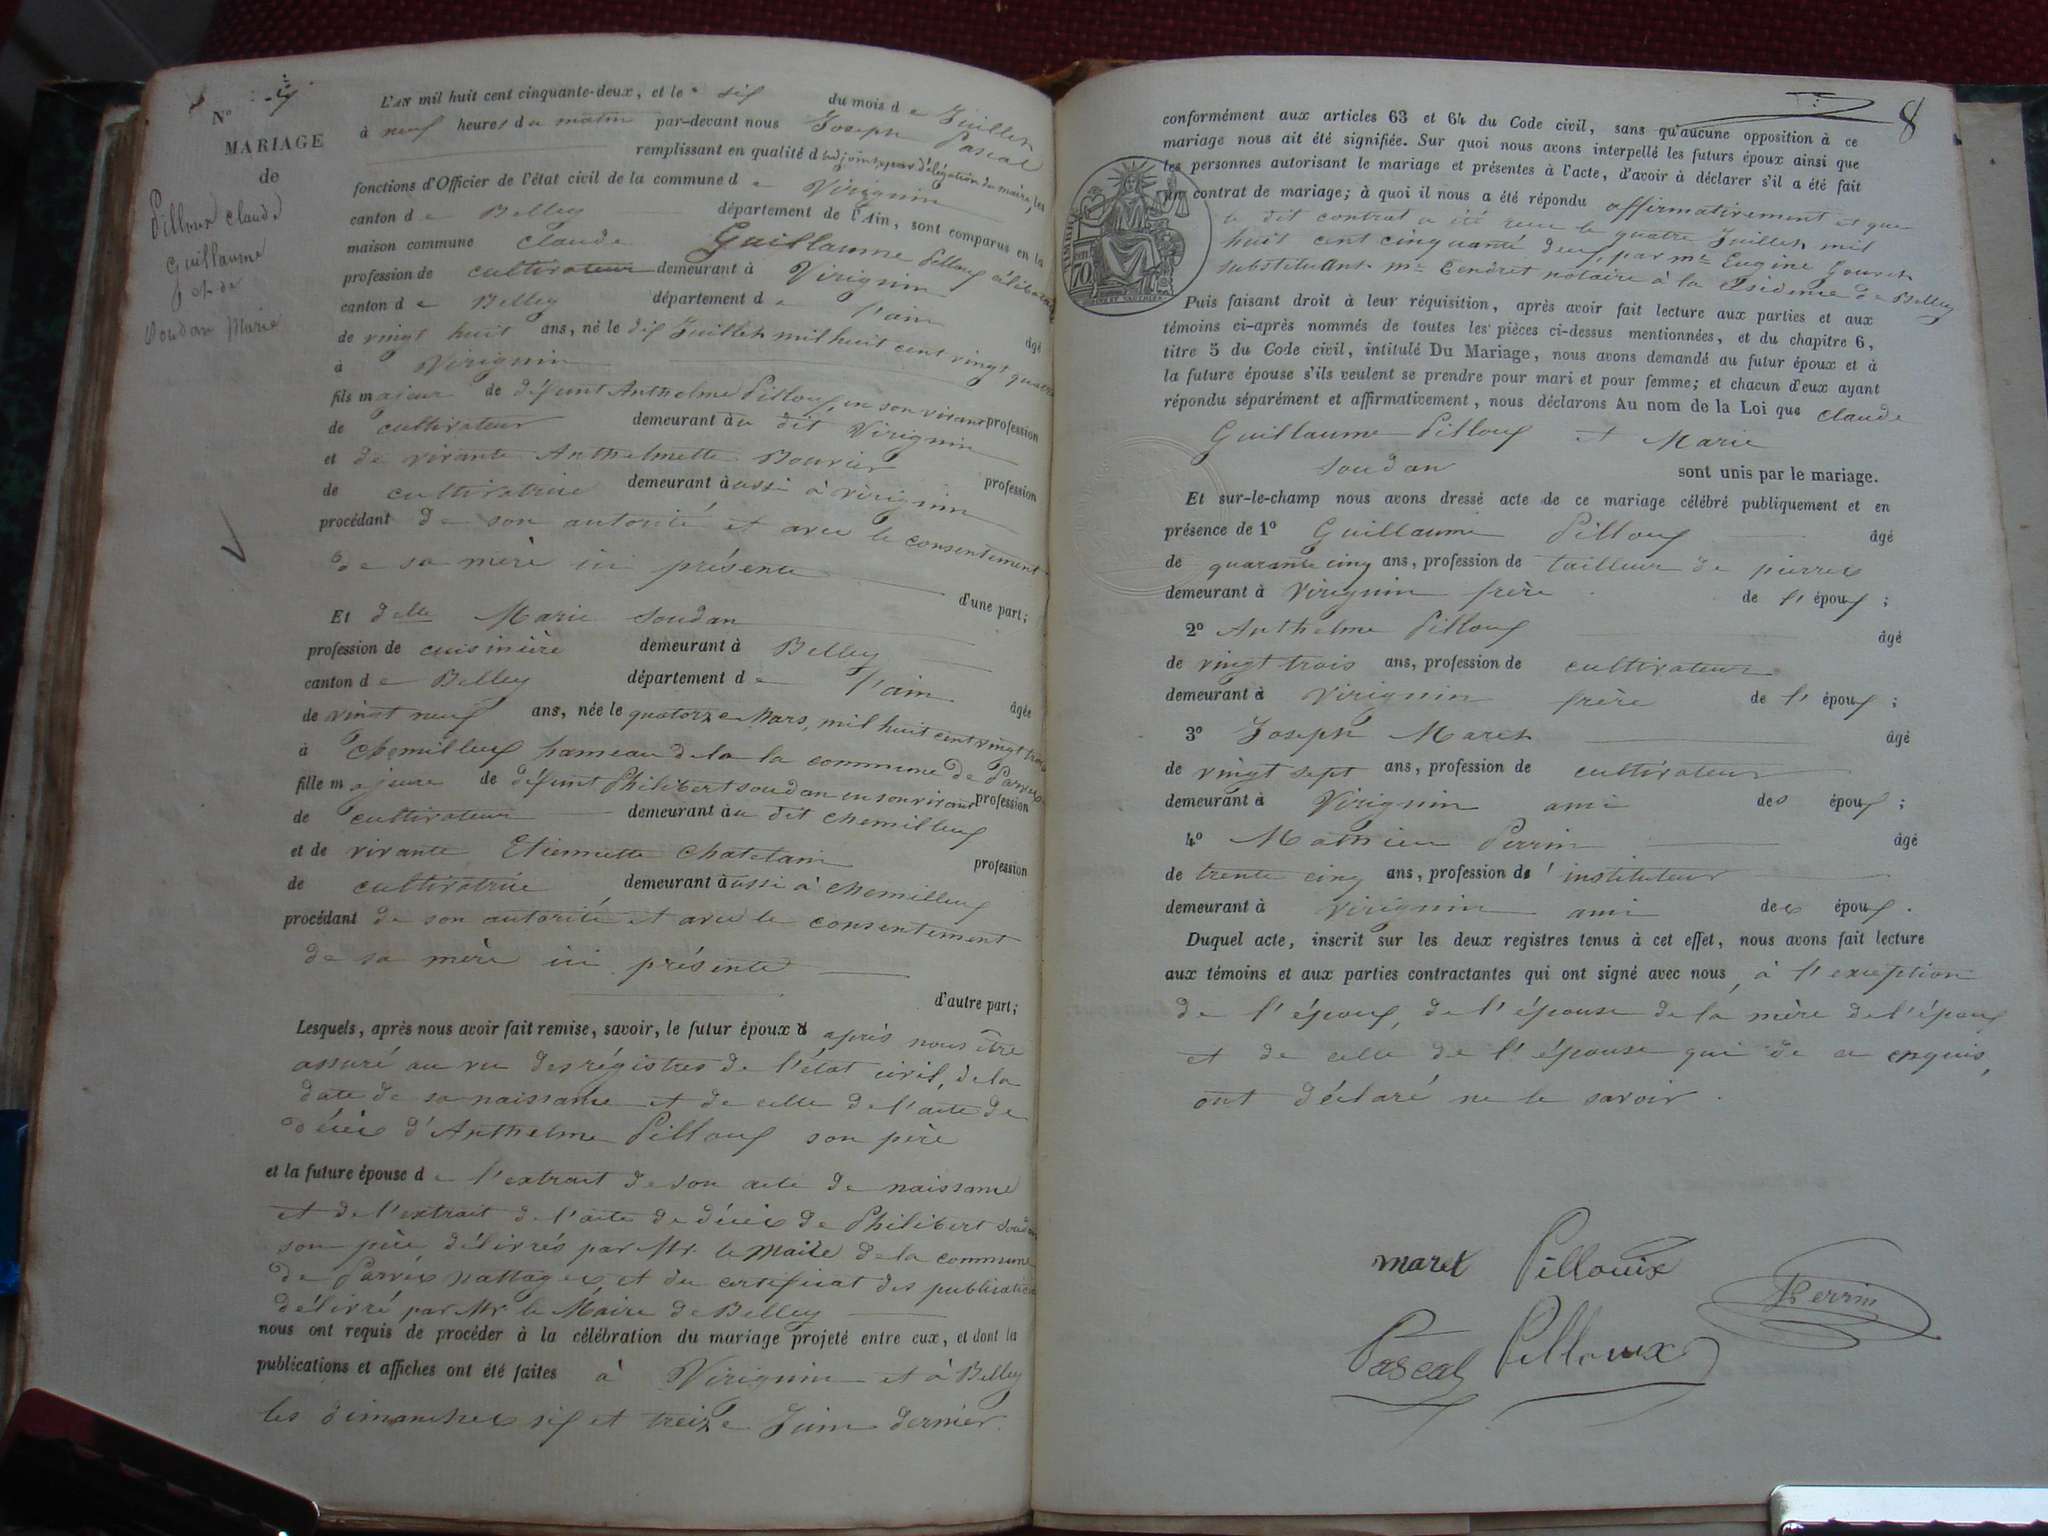 N°
MARIAGE
de
Pilloux Claude
Guillaume
et de
Soudan Marie
L'AN mil huit cent cinquante-deux, et le six du mois de Juillet
à neuf heures du matin par-devant nous Joseph Pascal
remplissant en qualité d'adjoint, par délégation du maire, les
fonctions d'Officier de l'état civil de la commune de Virignin
canton de Belley département de l'Ain, sont comparus en la
maison commune Claude Guillaume Pilloux célibataire
profession de cultivateur demeurant à Virignin
canton de Belley département de l'ain âgé
de vingt huit ans, né le dix Juillet mil huit cent vingt quatre
à Virignin
fils majeur de défunt Anthelme Pilloux, en son vivant profession
de cultivateur demeurant au dit Virignin
et de vivante Anthelmette Bouvier profession
de cultivatrice demeurant aussi à virignin
procédant de son autorité et avec le consentement
de sa mère ici présente
d'une part;
Et delle Marie Soudan
profession de cuisinière demeurant à Belley
canton de Belley département de l'ain âgée
de vingt neuf ans, née le quatorze Mars, mil huit cent vingt trois
à Chemilleux hameau de la la commune de Parves
fille majeure de défunt Philibert Soudan en son vivant profession
de cultivateur demeurant au dit chemilleux
et de vivante Etiennette Chatelain profession
de cultivatrice demeurant aussi à chemilleux
procédant de son autorité et avec le consentement
de sa mère ici présente
d'autre part;
Lesquels, après nous avoir fait remise, savoir, le futur époux après nous être
assuré au vu des régistres de l'état civil, de la
date de sa naissance et de celle de l'acte de
décès d'Anthelme Pilloux son père
et la future épouse de l'extrait de son acte de naissance
et de l'extrait de l'acte de décès de Philibert Soudan
son père délivrés par Mr. le Maire de la commune
de Parves Nattages, et du certificat des publications
délivré par Mr le Maire de Belley
nous ont requis de procéder à la célébration du mariage projeté entre eux, et dont la
publications et affiches ont été faites à Virignin et à Belley
les dimanches six et treize Juin dernier.
8
conformément aux articles 63 et 64 du Code civil, sans qu'aucune opposition à ce
mariage nous ait été signifiée. Sur quoi nous avons interpellé les futurs époux ainsi que
les personnes autorisant le mariage et présentes à l'acte, d'avoir à déclarer s'il a été fait
un contrat de mariage; à quoi il nous a été répondu affirmativement et que
le dit contrat a été reçu le quatre Juillet mil
huit cent cinquante deux, par me Eugène Gouret
substituant me Cendret notaire à la résidence de Belley
TIMBRE
70
Puis faisant droit à leur réquisition, après avoir fait lecture aux parties et aux
témoins ci-après nommés de toutes les pièces ci-dessus mentionnées, et du chapitre 6,
titre 5 du Code civil, intitulé Du Mariage, nous avons demandé au futur époux et à
la future épouse s'ils veulent se prendre pour mari et pour femme; et chacun d'eux ayant
répondu séparément et affirmativement, nous déclarons Au nom de la Loi que Claude
Guillaume Pilloux et Marie
Soudan sont unis par le mariage.
Et sur-le-champ nous avons dressé acte de ce mariage célébré publiquement et en
présence de 1° Guillaume Pilloux âgé
de quarante cinq ans, profession de tailleur de pierres
demeurant à Virignin frère de l'époux;
2° Anthelme Pilloux âgé
de vingt trois ans, profession de cultivateur
demeurant à Virignin frère de l'époux;
3° Joseph Maret âgé
de vingt sept ans, profession de cultivateur
demeurant à Virignin ami des époux;
4° Mathieu Perrin âgé
de trente cinq ans, profession d'instituteur
demeurant à Virignin ami des époux.
Duquel acte, inscrit sur les deux registres tenus à cet effet, nous avons fait lecture
aux témoins et aux parties contractantes qui ont signé avec nous, à l'exception
de l'époux, de l'épouse de la mère de l'époux
et de celle de l'épouse qui de ce enquis,
ont déclaré ne le savoir.
maret Pillouix
Perrin
Pascal Pillouix